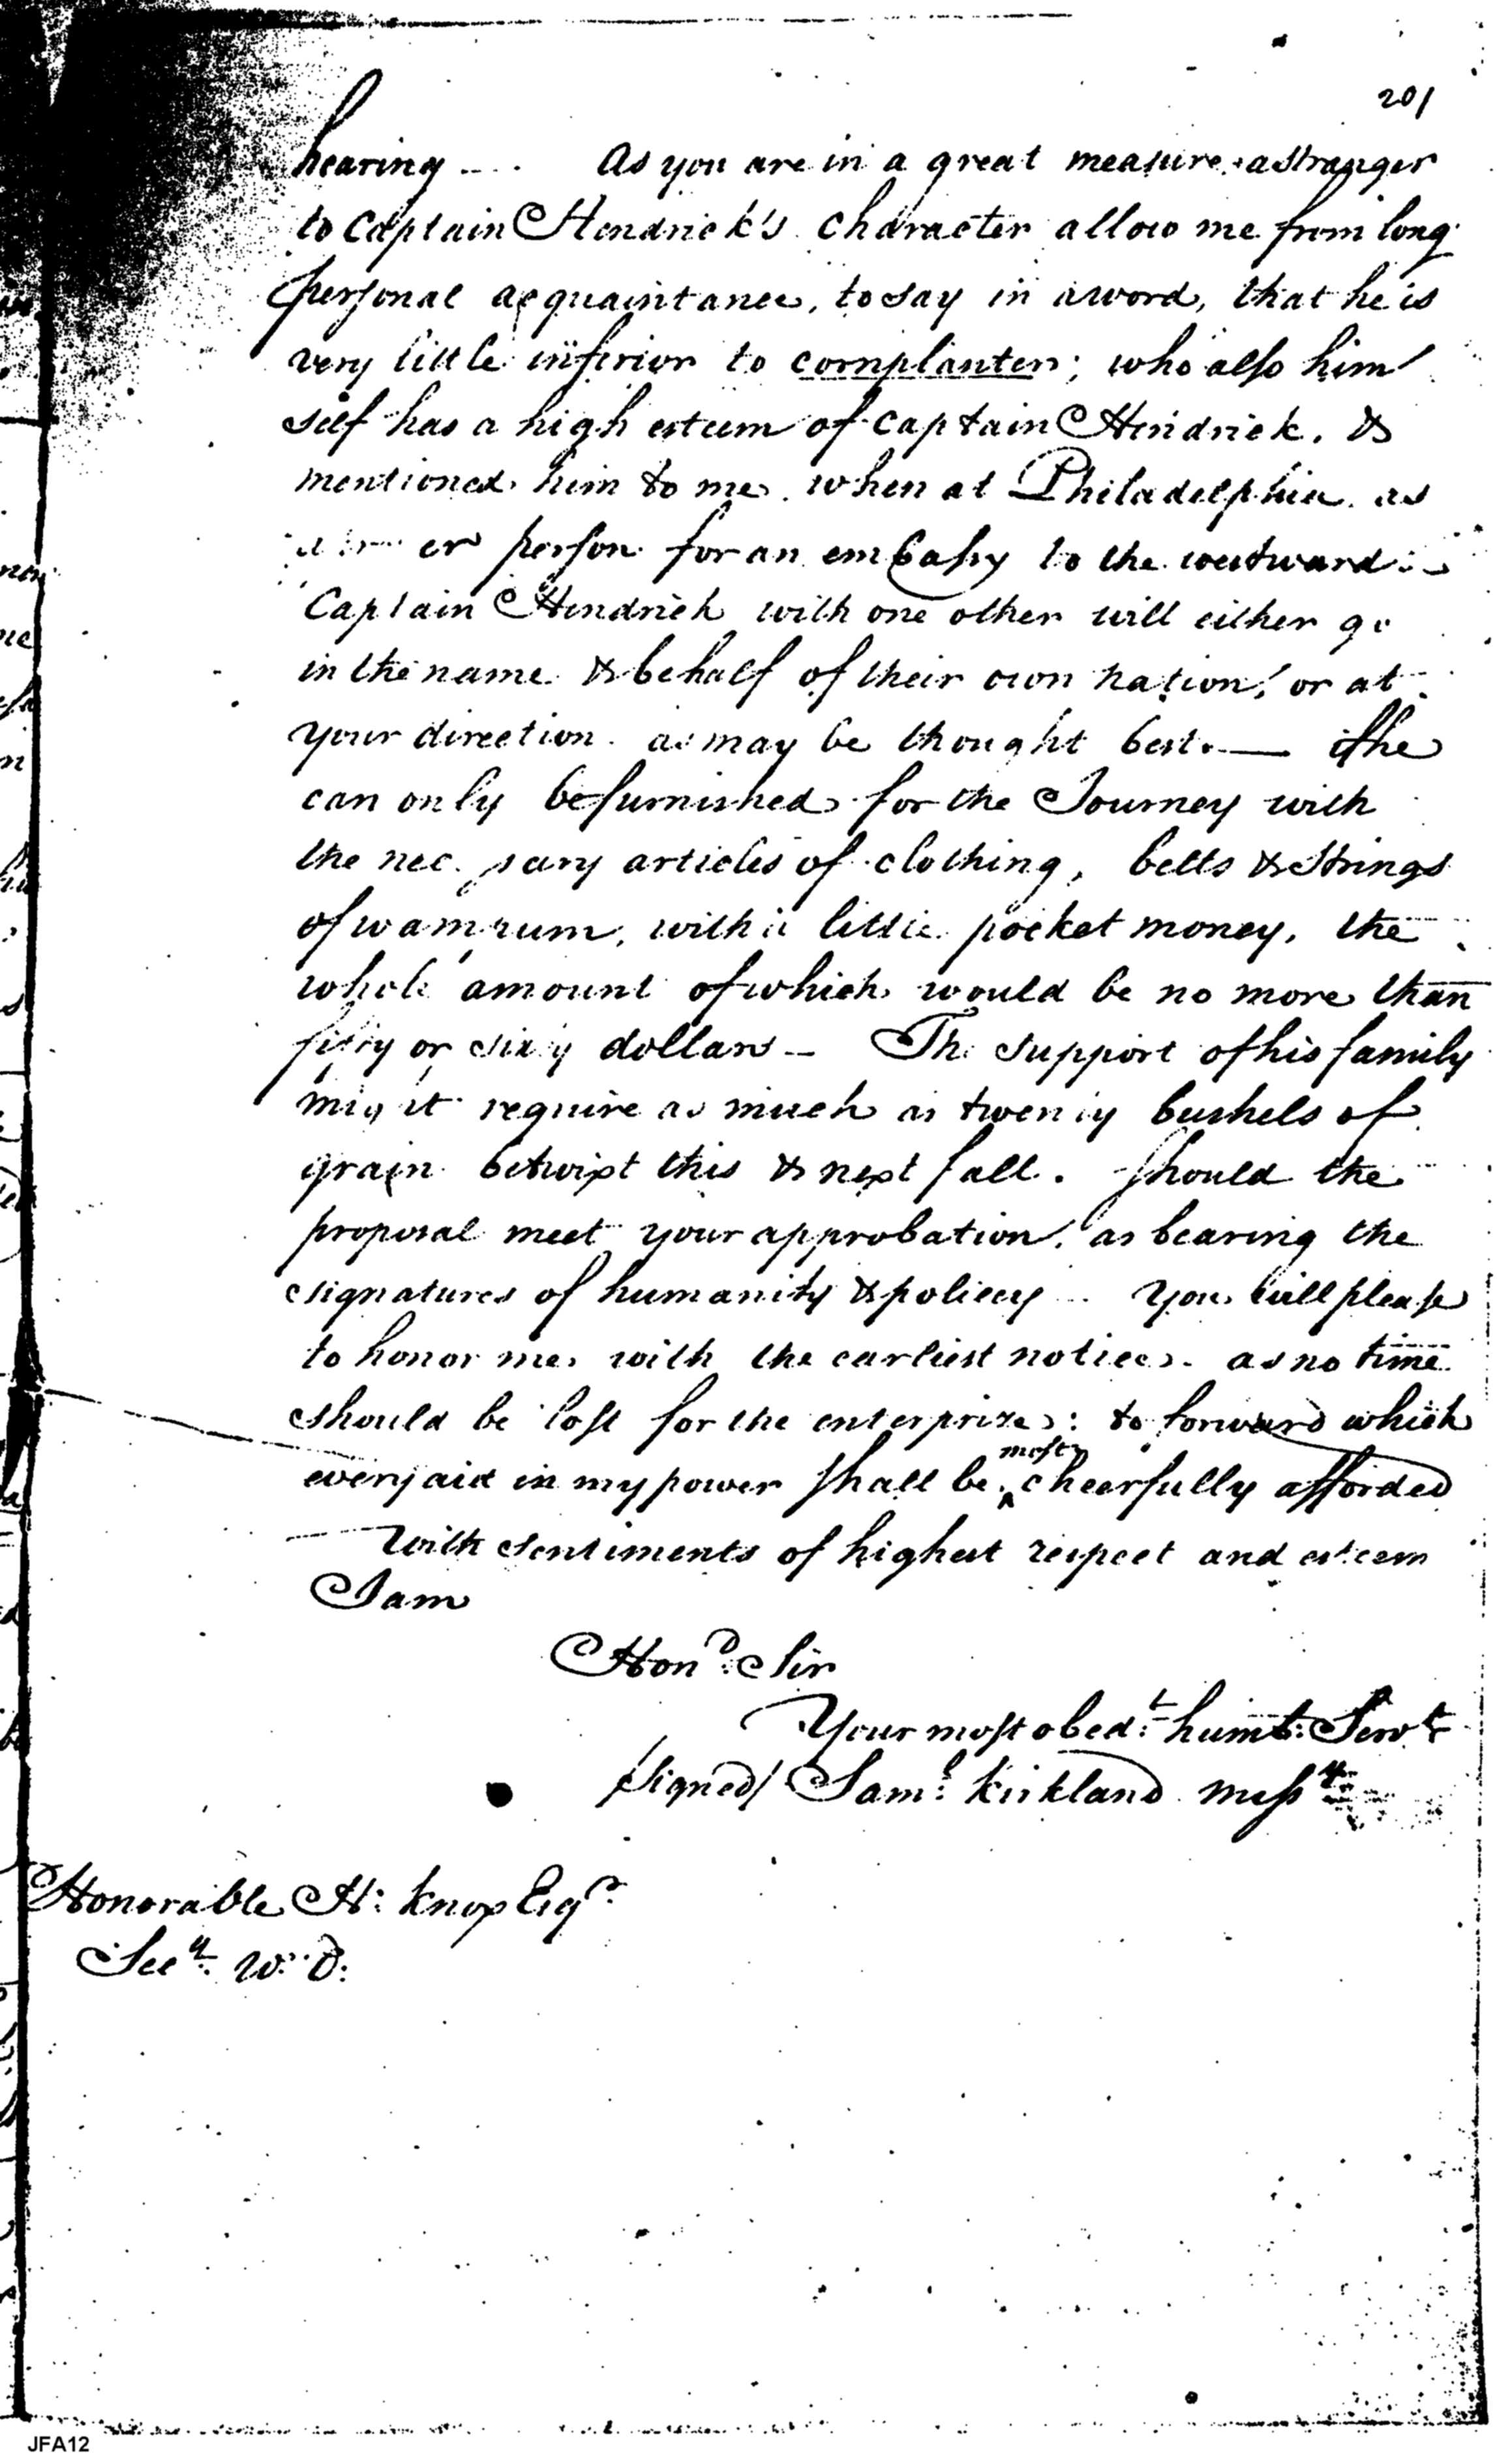 201
hearing -- As you are in a great measure a stranger
to Captain Hendrick's character allow me from long
personal acquaintance, to say in a word, that he is
very little inferior to cornplanter; who also him
self has a high esteem of Captain Hendrick. &
mentioned him to me when at Philadelphia as
a person for an embassy to the westward.
Captain Hendrick with one other will either go
in the name & behalf of their own nation, or at
your direction as may be thought best. — if he
can only be furnished for the Journey with
the necessary articles of clothing, belts & Strings
of wampum, with a little pocket money, the
whole amount of which would be no more than
fifty or sixty dollars — The support of his family
might require as much as twenty bushels of
grain betwixt this & next fall. Should the
proposal meet your approbation, as bearing the
signatures of humanity & policy -- You will please
to honor me with the earliest notice. as no time
should be lost for the enterprize: to forward which
every aid in my power shall be ^most cheerfully afforded
With sentiments of highest respect and esteem
I am
Hond. Sir
Your most obedt. humb. Servt
/signed/ Saml. Kirkland Missy
Honorable H: Knox Esqr.
Secy. W. D.
JFA12